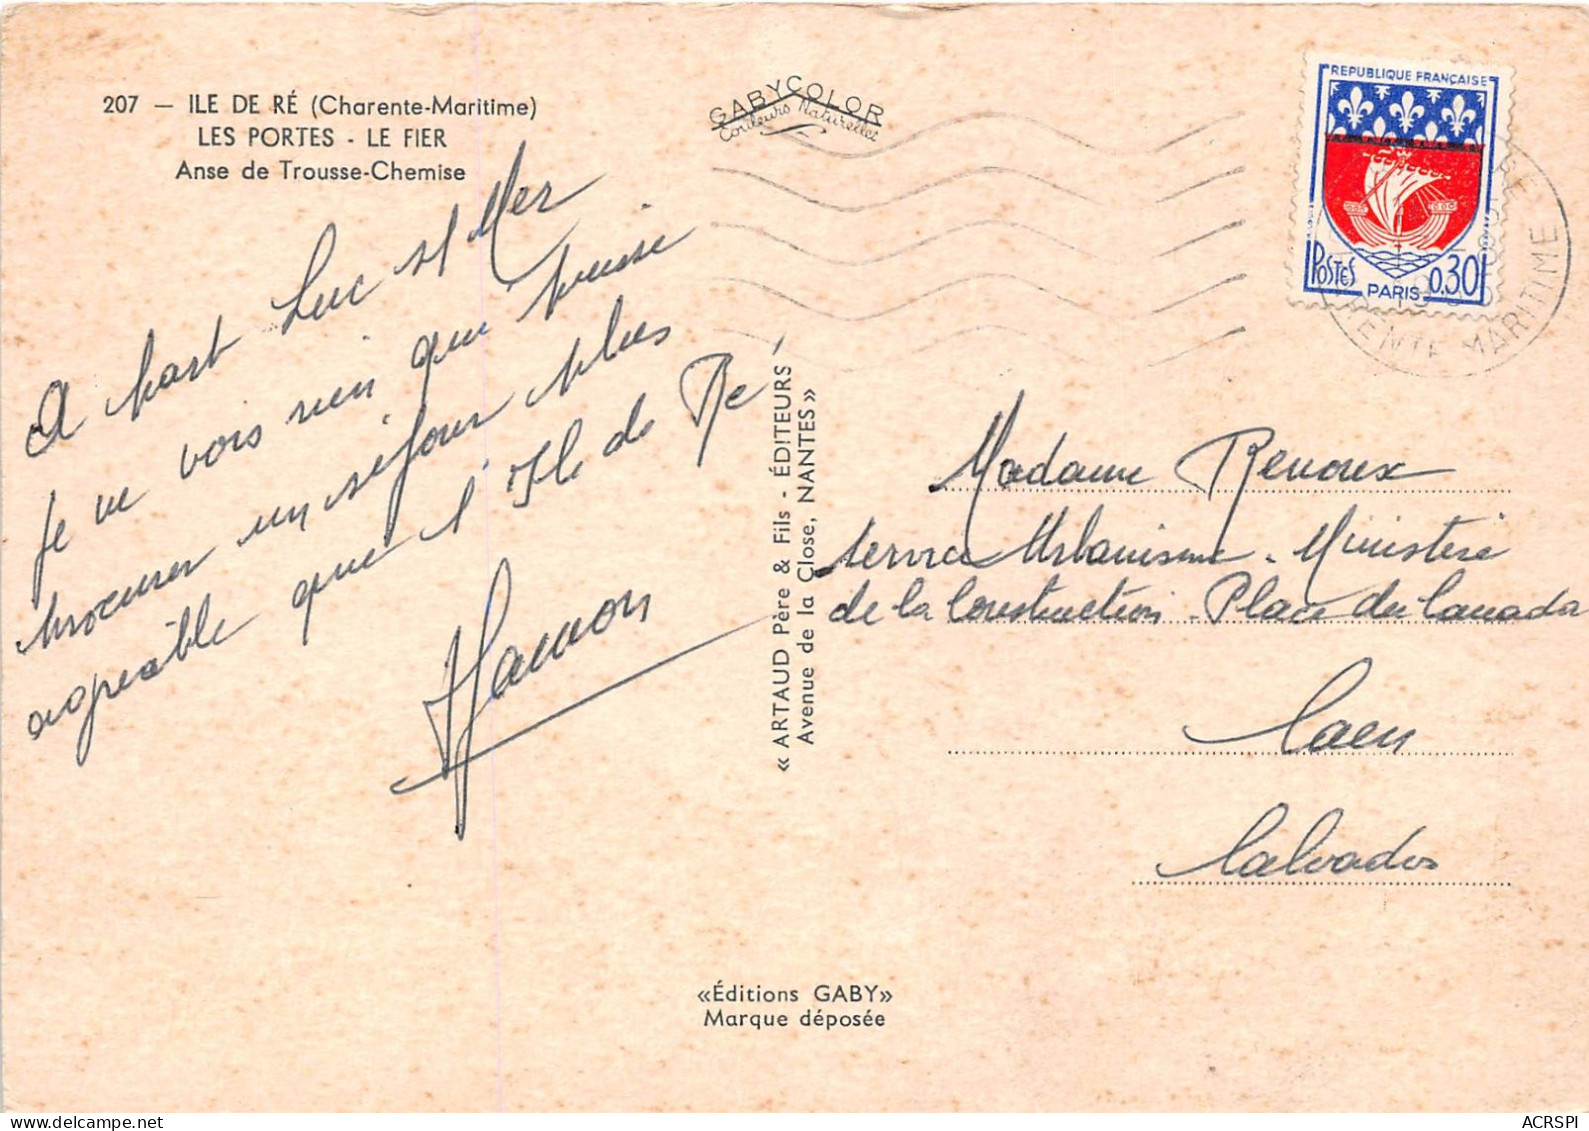 207 — ILE DE RÉ (Charente-Maritime)
LES PORTES - LE FIER
Anse de Trousse-Chemise
GABYCOLOR
Couleurs Naturelles
A part Luc s/ Mer
je ne vois rien qui puisse
procurer un séjour plus
agréable que l'Ile de Ré
Hamon
« ARTAUD Père & Fils - ÉDITEURS
Avenue de la Close, NANTES »
REPUBLIQUE FRANÇAISE
POSTES
PARIS
0,30
MARITIME
Madame Renoux
service Urbanisme - Ministère
de la Construction - Place du Canada
Caen
Calvados
«Éditions GABY»
Marque déposée
ACRSPI